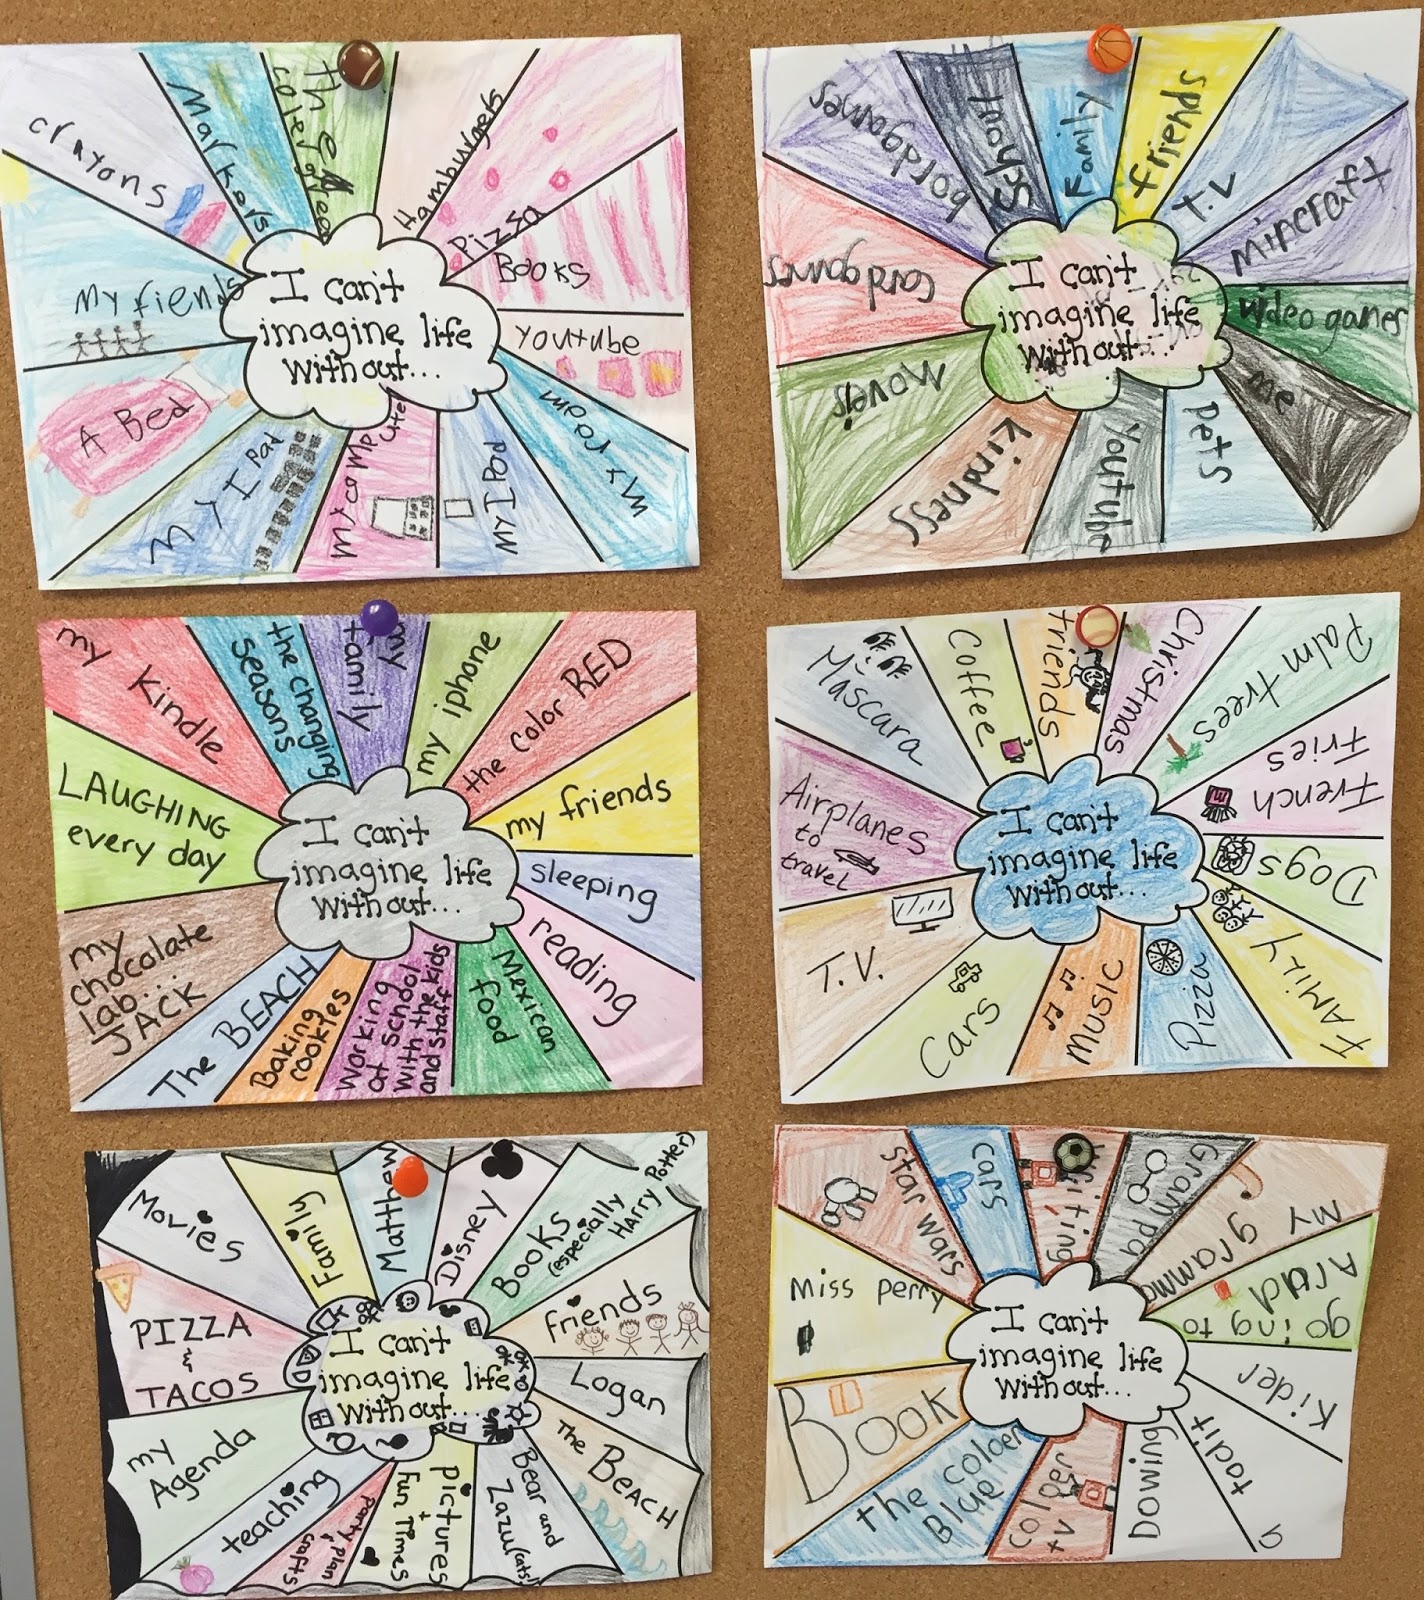 crayons
Markors
Hamburgers
Pizza
Books
Youtube
My
My I Pod
My I Pad
A Bed
My fiends
I can't
imagine life
without...
bordgames
School
Family
friends
T.V
mincraft
video games
me
pets
Youtube
kindness
Moveis
cardgames
I can't
imagine life
without...
my Kindle
the changing
seasons
my
family
my iphone
the color RED
my friends
sleeping
reading
Mexican
food
Working
at school
with the kids
and staff
Baking
cookies
The BEACH
my
chocolate
lab...
JACK
LAUGHING
every day
I can't
imagine life
without...
Máscara
Coffee
friends
Christmas
Palm trees
French
fries
Dogs
FAMILY
Pizza
Music
Cars
T.V.
Airplanes
to
travel
I can't
imagine life
without...
Movies
Family
Matthew
Disney
Books
(especially
Harry Potter)
friends
Logan
The BEACH
Bear and
Zazu (cats!)
pictures
+
Fun Times
party plan
+
crafts
teaching
my
Agenda
PIZZA
&
TACOS
I can't
imagine life
without...
star wars
cars
Writing
Grampa
My
gramma
going to
Kider
a
Downing
the coloer
Blue
Book
Miss perry
I can't
imagine life
without...